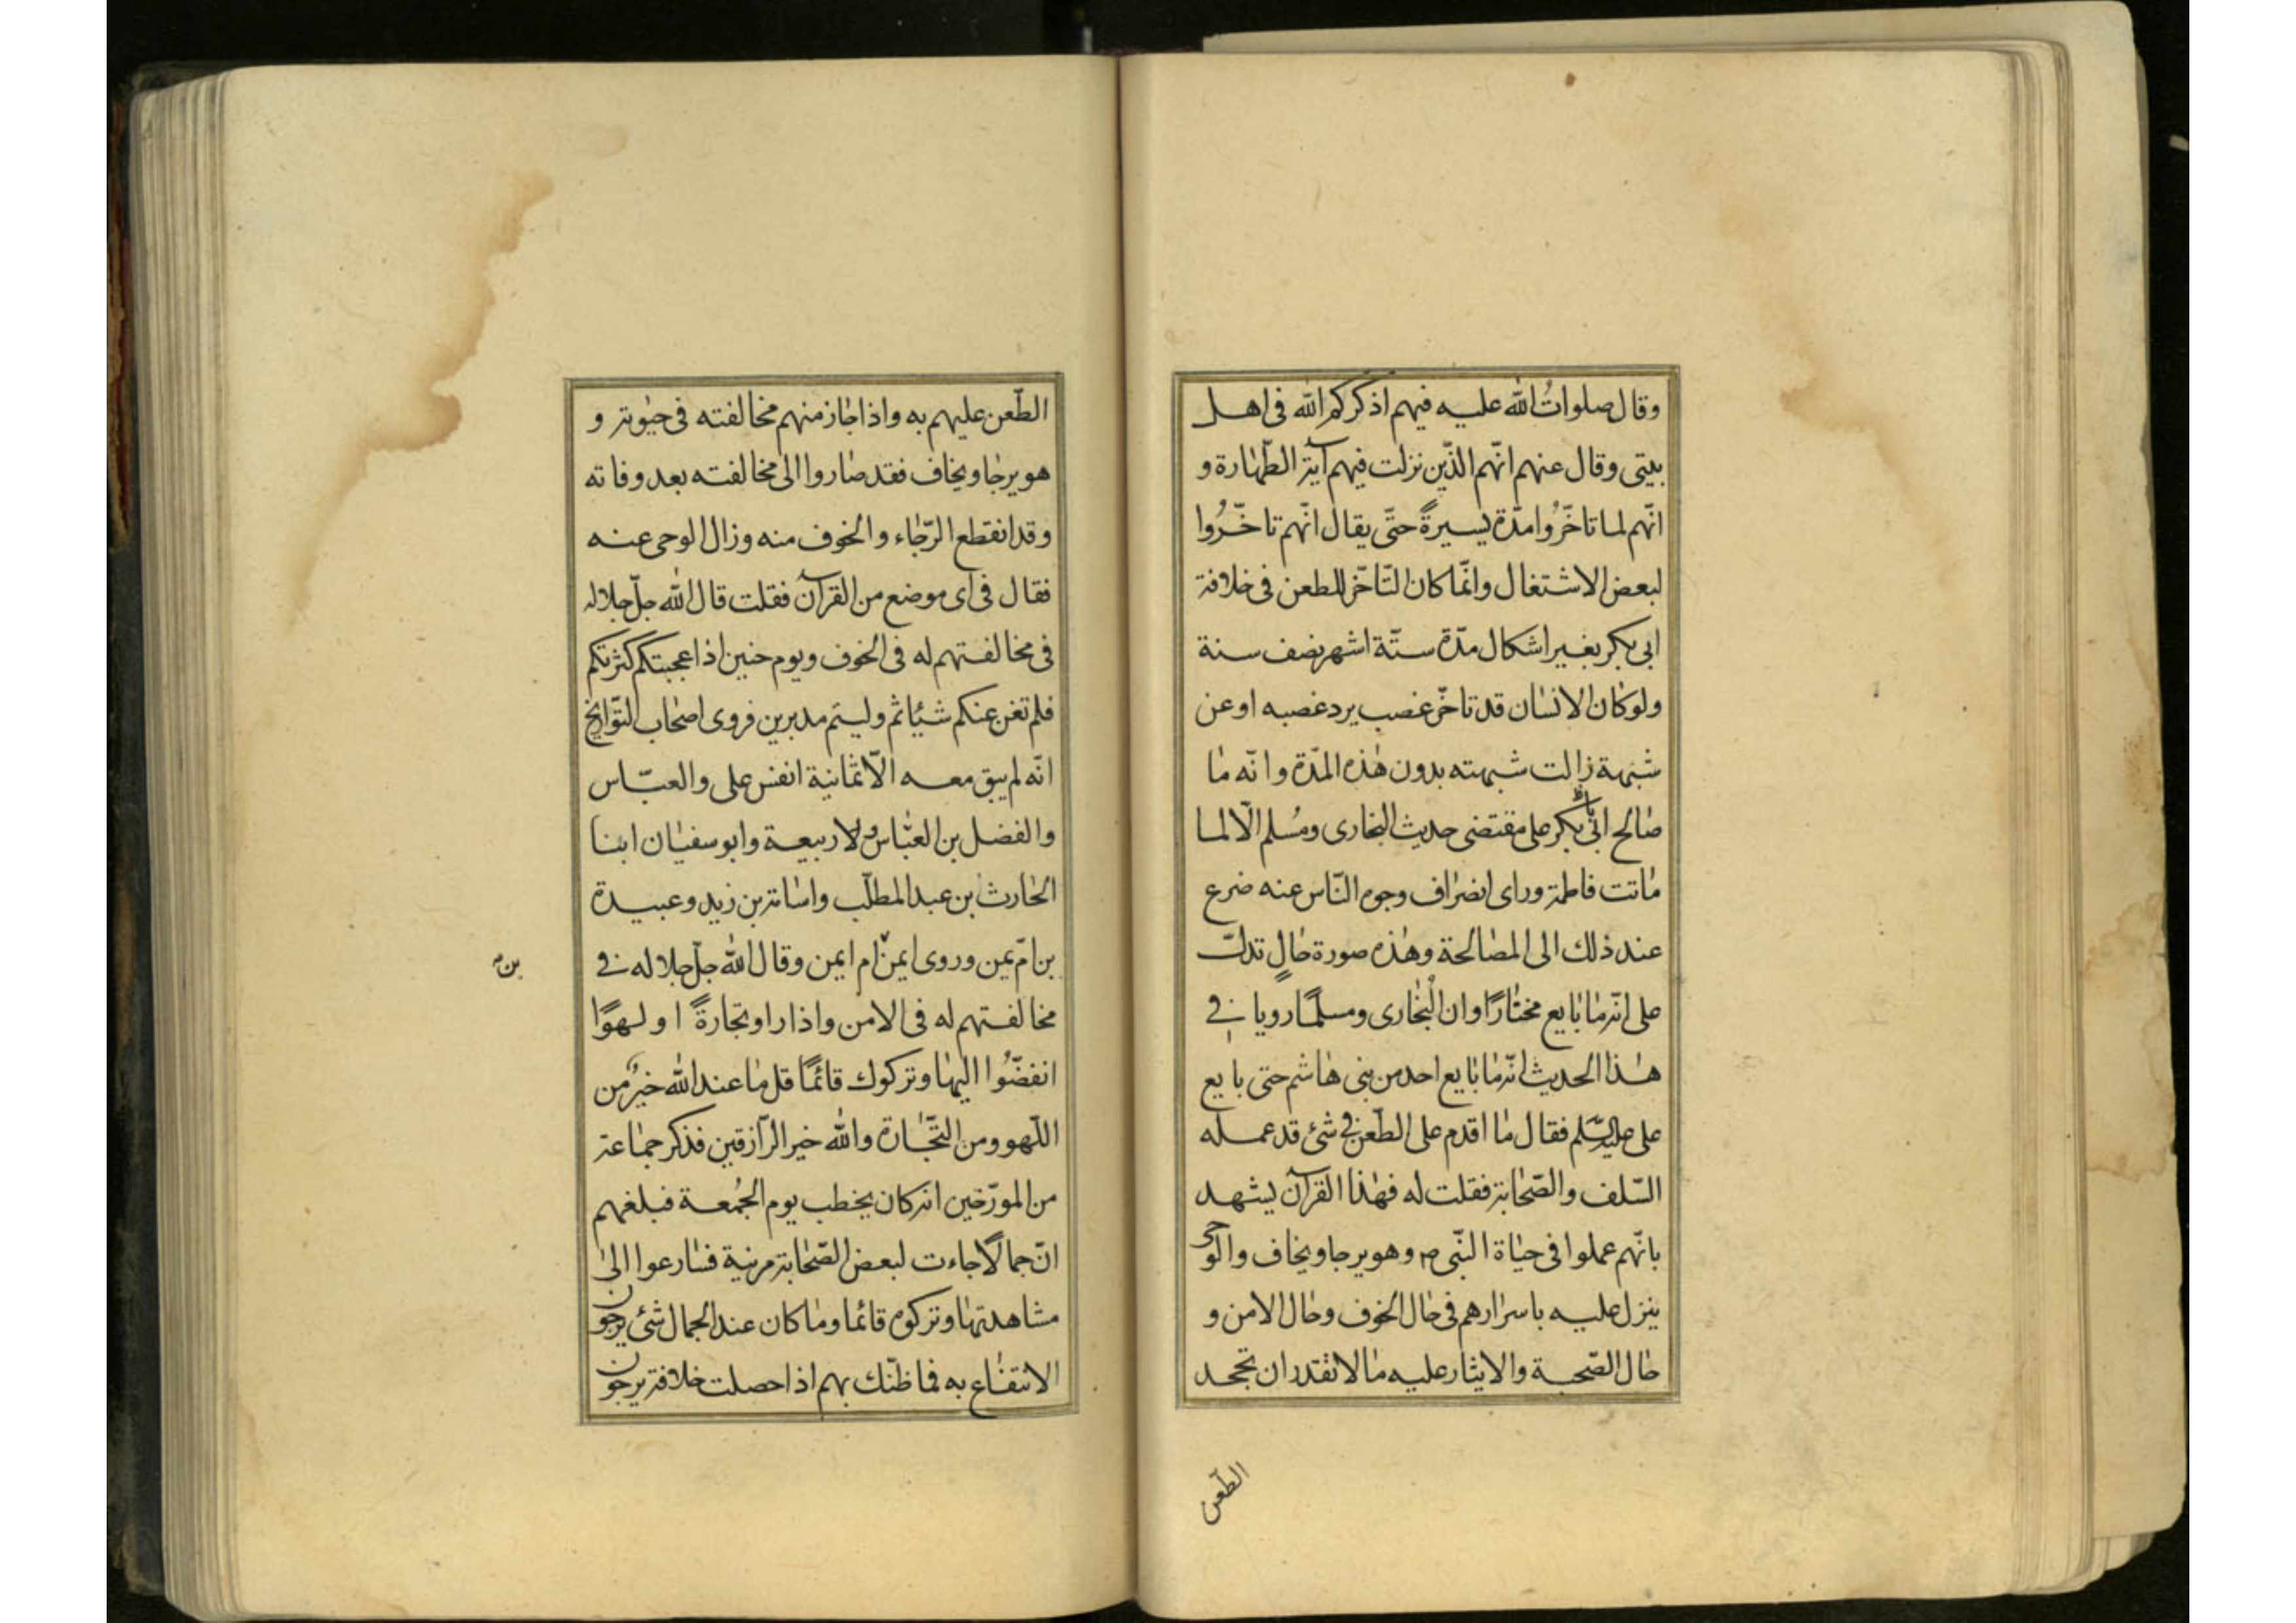 وقال صلوات الله عليه فيهم اذكركم الله في اهل
بيتي وقال عنهم انّهم الذّين نزلت فيهم آية الطّهارة و
انّهم لما تاخّرُوا مدّة يسيرةً حتّى يقال انّهم تاخّرُوا
لبعض الاشتغال وانّما كان التّاخّر للطعن في خلافة
ابى بكر بغير اشكال مدّة ستّة اشهر نصف سنة
ولو كان الانسان قد تاخّر غصب يرد غصبه او عن
شبهة زالت شبهته بدون هذه المدّة وانّه ما
صالح ابى بكر على مقتضى حديث البخارى ومُسلم الّا لما
ماتت فاطمة وراى انصراف وجوه النّاس عنه ضرع
عند ذلك الى المصالحة وهذه صورة حالٍ تدلّ
على انّه ما بايع مختارًا وان البُخارى ومسلمًا رويا في
هذا الحديث انّه ما بايع احد من بني هاشم حتى بايع
على عليه السّلم فقال ما اقدم على الطّعن في شئ قد عمله
السّلف والصّحابة فقلت له فهذا القرآن يشهد
بانّهم عملوا في حياة النّبى ص وهو يرجا ويخاف والوحى
ينزل عليه باسرارهم في حال الخوف وحال الامن و
حال الصّحبة والايثار عليه ما لا تقدر ان تجحد
الطّعن
الطّعن عليهم به واذا جاز منهم مخالفته في حيوته و
هو يرجا ويخاف فقد صاروا الى مخالفته بعد وفاته
وقد انقطع الرّجاء والخوف منه وزال الوحى عنه
فقال في اى موضع من القرآن فقلت قال الله جلّ جلاله
في مخالفتهم له في الخوف ويوم حنين اذ اعجبتكم كثرتكم
فلم تغن عنكم شيئا ثم وليتم مدبرين فروى اصحاب التّواريخ
انّه لم يبق معه الّا ثمانية انفس على والعبّاس
والفضل بن العبّاس ولا ربيعة وابو سفيان ابنا
الحارث بن عبد المطلّب واسامة بن زيد وعبيدة
بن امّ يمن وروى ايمن ام ايمن وقال الله جلّ جلاله في
بن م
مخالفتهم له في الامن واذا راو تجارةً او لهوًا
انفضّوُا اليها وتركوك قائمًا قل ما عند الله خيرٌ من
اللّهو ومن التّجارة والله خير الرّازقين فذكر جماعة
من المورّخين انه كان يخطب يوم الجُمعة فبلغهم
انّ جمالًا جاءت لبعض الصّحابة مزينة فسارعوا الى
مشاهدتها وتركوه قائما وما كان عند الجمال شئ يرجون
الانتفاع به فما ظنّك بهم اذا حصلت خلافة يرجون